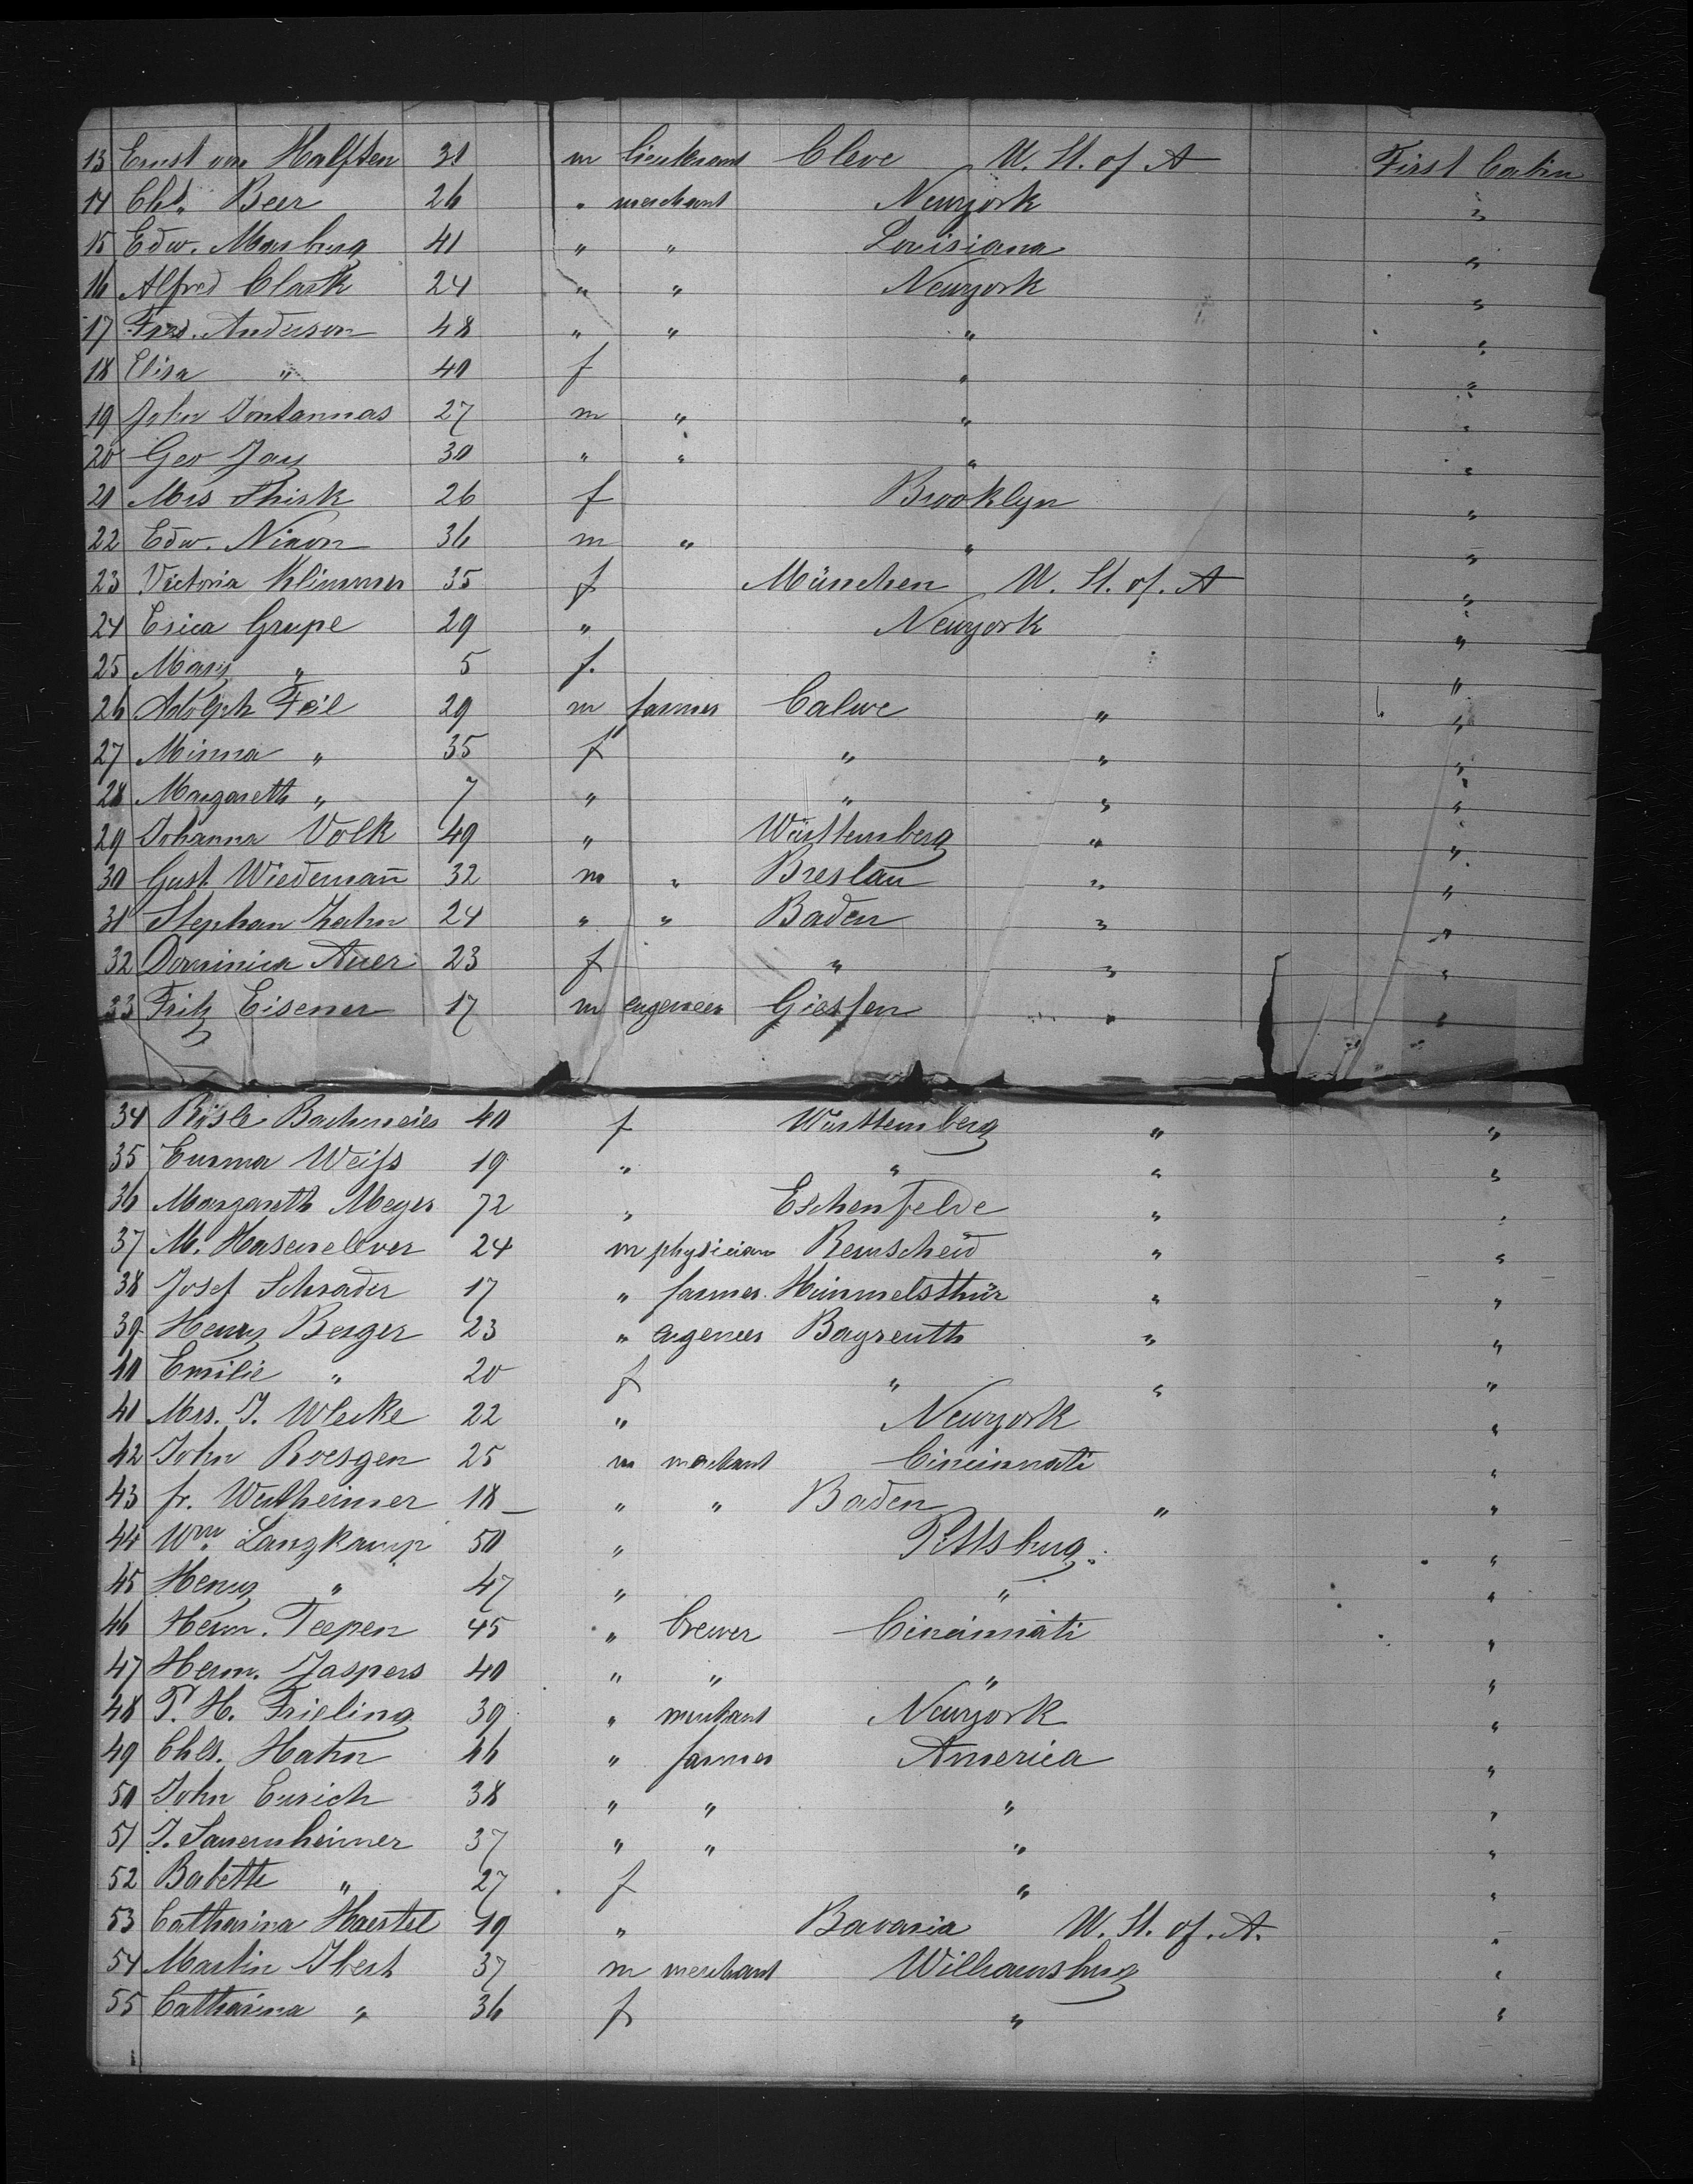 13 Ernst von Halften 31 m lieutenant Cleve U. St. of A First Cabin
14 Chs. Beer 26 " merchant Newyork "
15 Edw. Marburg 41 " " Louisiana "
16 Alfred Clark 24 " " Newyork "
17 Fred. Anderson 48 " " " "
18 Elisa " 40 f " "
19 John 27 m " " "
20 Geo Jay 30 " " " "
21 Mrs Thirk 26 f Brooklyn "
22 Edw. Nixon 36 m " " "
23 Victoria Klimmer 35 f München U. St. of. A "
24 Erica Grupe 29 " Newyork "
25 Mary " 5 f. "
26 Adolph Feil 29 m farmer Calwe " "
27 Minna " 35 f " " "
28 Margareth " 7 " " " "
29 Johanna Volk 49 " Württemberg " "
30 Gust. Wiedemañ 32 m " Breslau " "
31 Stephan Zahn 24 " " Baden " "
32 Dominica Auer 23 f " " "
33 Fritz Eisener 17 m engeneer Giessen " "
34 Rösle Bachmeier 40 f Württemberg " "
35 Emma Weifs 19 " " " "
36 Margareth Meyer 72 " Eschenfelde " "
37 M. Hasenclever 24 m physician Remscheid " "
38 Josef Schrader 17 " farmer Himmelsthür " "
39 Henry Berger 23 " engeneer Bayreuth " "
40 Emilie " 20 f " " "
41 Mrs. J. Wlecke 22 " Newyork "
42 John Roesgen 25 m merchant Cincinnati "
43 fr. Wertheimer 18 " " Baden " "
44 Wm. Langkamp 50 " Pittsburg. "
45 Henry " 47 " " "
46 Herm. Teepen 45 " brewer Cincinnati "
47 Herm. Jaspers 40 " " " "
48 P. H. Frieling 39 " merchant Newyork "
49 Chls. Hahn 46 " farmer America "
50 John Eurich 38 " " " "
51 J. Sauernheimer 37 " " " "
52 Babette " 27 f " "
53 Catharina Haertel 19 " Bavaria U. St. of. A. "
54 Martin Ibert 37 m merchant Williamsburg "
55 Catharina " 36 f " "